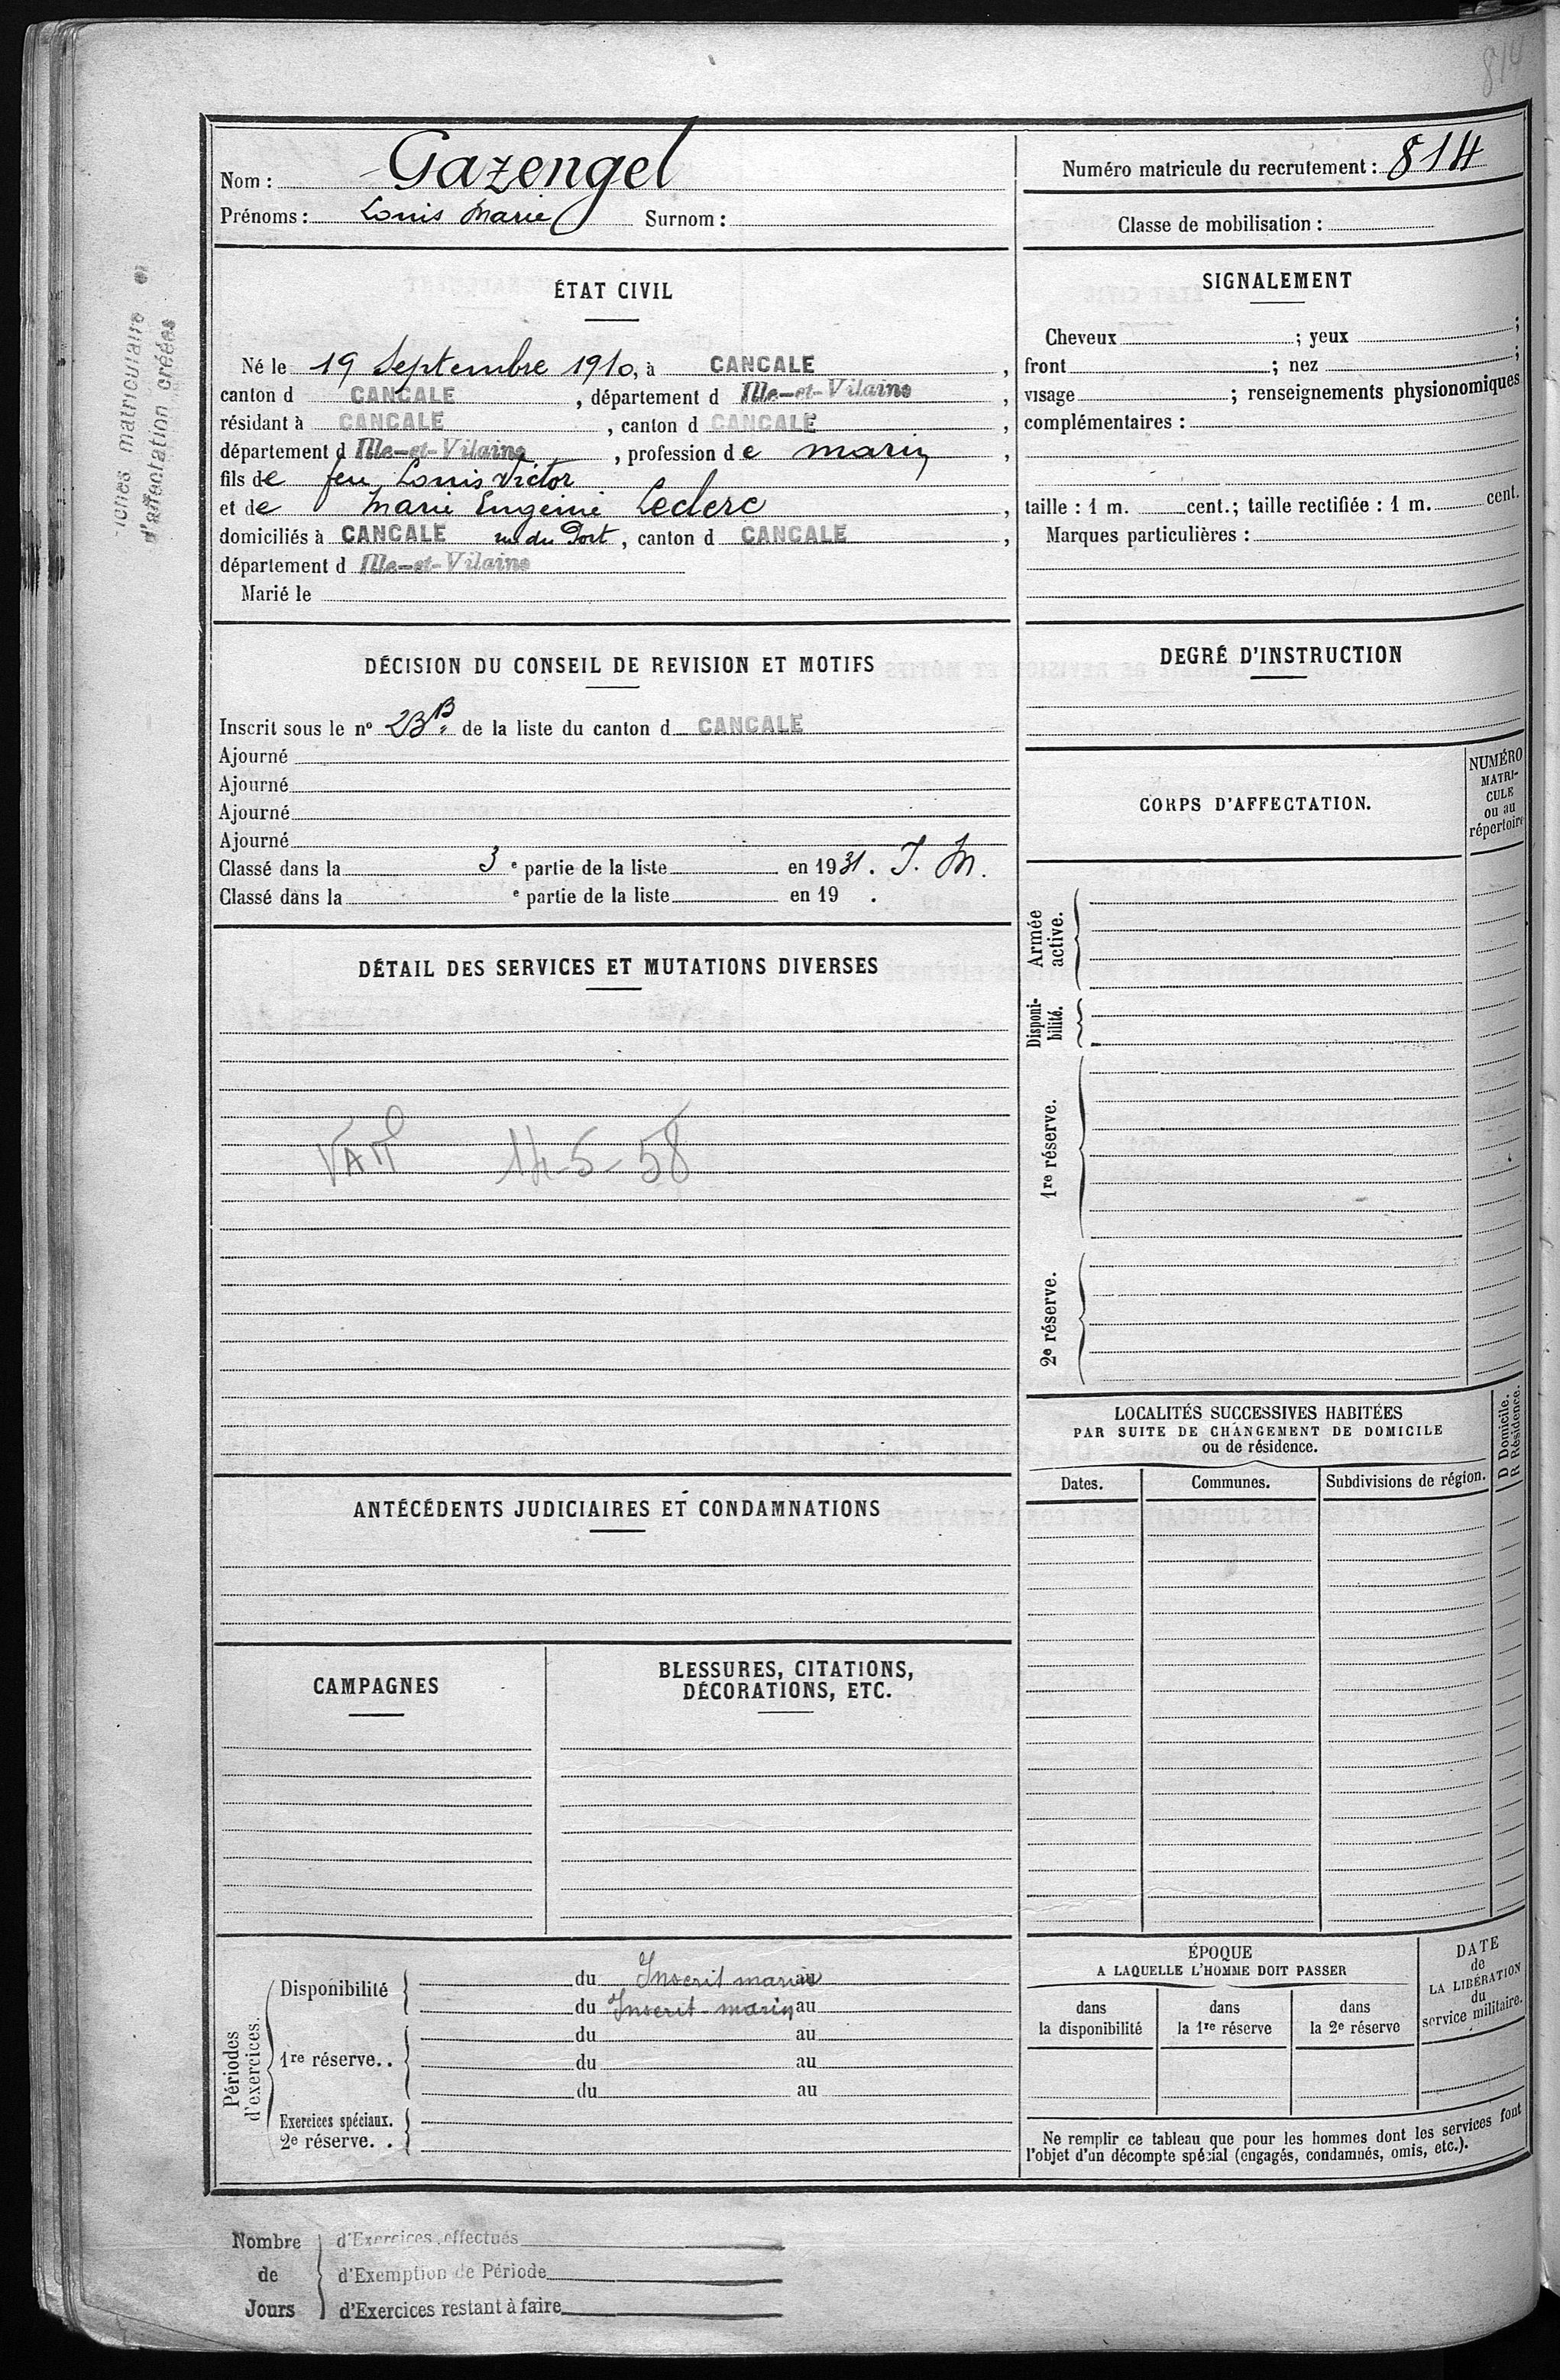 814
Nom : Gazengel
Prénoms : Louis Marie Surnom :
Numéro matricule du recrutement : 814
Classe de mobilisation :
matriculaire et
d'affectation créées
ÉTAT CIVIL
Né le 19 Septembre 1910, à CANCALE ,
canton d CANCALE , département d Ille-et-Vilaine ,
résidant à CANCALE , canton d CANCALE ,
département d Ille-et-Vilaine , profession de marin ,
fils de feu Louis Victor
et de Marie Eugénie Leclerc ,
domiciliés à CANCALE rue du Port , canton d CANCALE ,
département d Ille-et-Vilaine
Marié le
SIGNALEMENT
Cheveux ; yeux ;
front ; nez ;
visage ; renseignements physionomiques
complémentaires :
taille : 1 m. cent.; taille rectifiée : 1 m. cent.
Marques particulières :
DÉCISION DU CONSEIL DE REVISION ET MOTIFS
Inscrit sous le nº 23 B de la liste du canton d CANCALE
Ajourné
Ajourné
Ajourné
Ajourné
Classé dans la 3 e partie de la liste en 1931. I. M.
Classé dans la e partie de la liste en 19 .
DEGRÉ D'INSTRUCTION
CORPS D'AFFECTATION.
NUMÉRO
MATRI-
CULE
ou au
répertoire
Armée
active.
Disponi-
bilité.
1re réserve.
2e réserve.
DÉTAIL DES SERVICES ET MUTATIONS DIVERSES
14-5-58
ANTÉCÉDENTS JUDICIAIRES ET CONDAMNATIONS
LOCALITÉS SUCCESSIVES HABITÉES
PAR SUITE DE CHANGEMENT DE DOMICILE
ou de résidence.
D Domicile.
R Résidence.
Dates. Communes. Subdivisions de région.
CAMPAGNES
BLESSURES, CITATIONS,
DÉCORATIONS, ETC.
Périodes
d'exercices.
Disponibilité
du Inscrit marin au
du Inscrit-marin au
1re réserve. .
du au
du au
du au
Exercices spéciaux.
2e réserve. .
ÉPOQUE
A LAQUELLE L'HOMME DOIT PASSER
dans
la disponibilité
dans
la 1re réserve
dans
la 2e réserve
DATE
de
LA LIBÉRATION
du
service militaire.
Ne remplir ce tableau que pour les hommes dont les services font
l'objet d'un décompte spécial (engagés, condamnés, omis, etc.).
Nombre
de
Jours
d'Exercices effectués
d'Exemption de Période
d'Exercices restant à faire